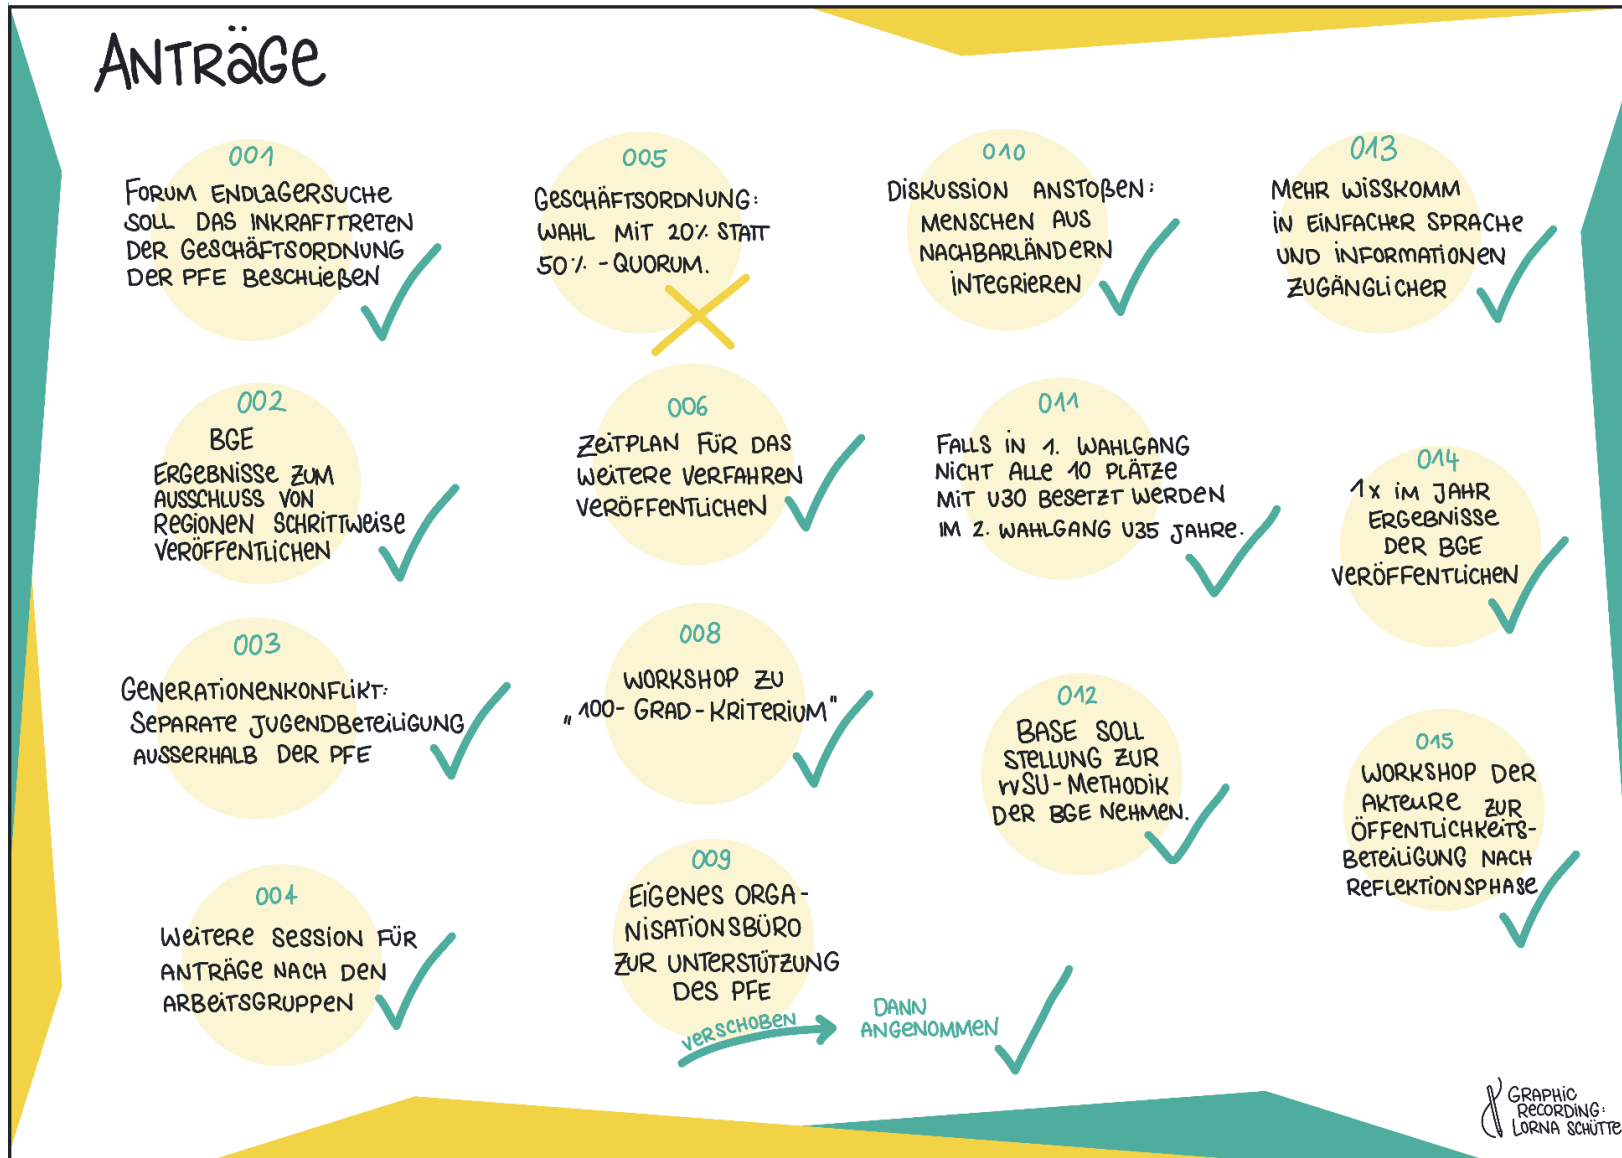 ANTRÄGE
001
FORUM ENDLAGERSUCHE
SOLL DAS INKRAFTTRETEN
DER GESCHÄFTSORDNUNG
DER PFE BESCHLIEßEN
002
BGE
ERGEBNISSE ZUM
AUSSCHLUSS VON
REGIONEN SCHRITTWEISE
VERÖFFENTLICHEN
003
GENERATIONENKONFLIKT:
SEPARATE JUGENDBETEILIGUNG
AUSSERHALB DER PFE
004
WEITERE SESSION FÜR
ANTRÄGE NACH DEN
ARBEITSGRUPPEN
005
GESCHÄFTSORDNUNG:
WAHL MIT 20% STATT
50% - QUORUM.
006
ZEITPLAN FÜR DAS
WEITERE VERFAHREN
VERÖFFENTLICHEN
008
WORKSHOP ZU
„100-GRAD-KRITERIUM"
009
EIGENES ORGA-
NISATIONSBÜRO
ZUR UNTERSTÜTZUNG
DES PFE
VERSCHOBEN
DANN
ANGENOMMEN
010
DISKUSSION ANSTOßEN:
MENSCHEN AUS
NACHBARLÄNDERN
INTEGRIEREN
011
FALLS IN 1. WAHLGANG
NICHT ALLE 10 PLÄTZE
MIT U30 BESETZT WERDEN
IM 2. WAHLGANG U35 JAHRE.
012
BASE SOLL
STELLUNG ZUR
rvSU-METHODIK
DER BGE NEHMEN.
013
MEHR WISSKOMM
IN EINFACHER SPRACHE
UND INFORMATIONEN
ZUGÄNGLICHER
014
1x IM JAHR
ERGEBNISSE
DER BGE
VERÖFFENTLICHEN
015
WORKSHOP DER
AKTEURE ZUR
ÖFFENTLICHKEITS-
BETEILIGUNG NACH
REFLEKTIONSPHASE
GRAPHIC
RECORDING:
LORNA SCHÜTTE